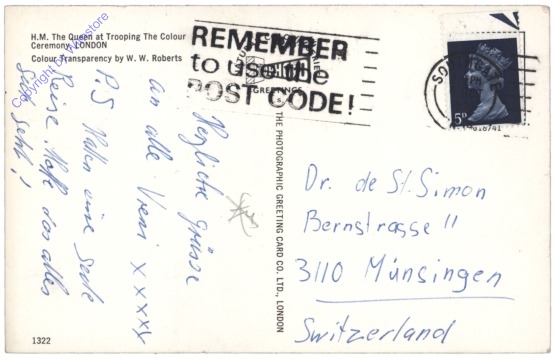 H.M. The Queen at Trooping The Colour
Ceremony, LONDON
Colour Transparency by W. W. Roberts
Copyright Dr. Winstore
REMEMBER
to use the
POST CODE!
GREETINGS
5D
Herzliche Grüsse
an alle Vreni x x x x
P.S. Hatten eine
Reise. Hoffe das alles
geht!
THE PHOTOGRAPHIC GREETING CARD CO. LTD., LONDON
Dr. de St. Simon
Bernstrasse 11
3110 Münsingen
Switzerland
1322